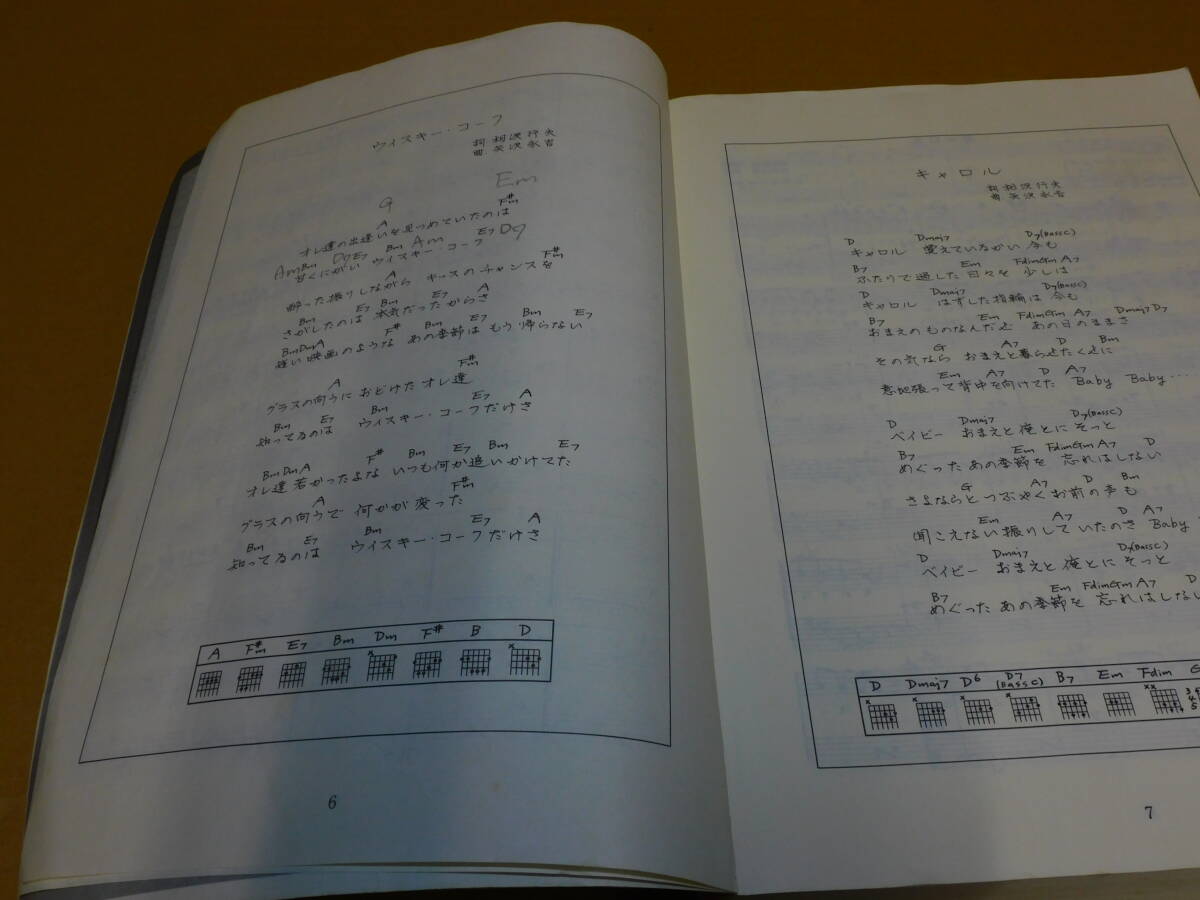 ウィスキー・コーク
詞 相沢行夫
曲 矢沢永吉
Em
G
A F#m
オレ達の出逢いを見つめていたのは
Am Bm D9 E7 Bm Am E7 D9
甘くにがい ウィスキー・コーク
A F#m
酔った振りしながら キースのチャンスを
Bm E7 Bm E7 A
さがしたのは 本気だったからさ
Bm Dm A F# Bm E7 Bm E7
遠い映画のような あの季節は もう帰らない
A F#m
グラスの向うに おどけた オレ達
Bm E7 Bm E7 A
知ってるのは ウィスキー・コークだけさ
Bm Dm A F# Bm E7 Bm E7
オレ達 若かったよな いつも何か追いかけてた
A F#m
グラスの向うで 何かが変った
Bm E7 Bm E7 A
知ってるのは ウィスキー・コークだけさ
A F#m E7 Bm Dm F# B D
6
キャロル
詞 相沢行夫
曲 矢沢永吉
D Dmaj7 D7(BassC)
キャロル 覚えていないかい 今も
B7 Em Fdim Gm A7
ふたりで過した日々を 少しは
D Dmaj7 D7(BassC)
キャロル はずした指輪は 今も
B7 Em Fdim Gm A7 Dmaj7 D7
おまえのものなんだと あの日のままさ
G A7 D Bm
その気なら おまえと暮らせたくせに
Em A7 D A7
意地張って背中を向けてた Baby Baby····
D Dmaj7 D7(BassC)
ベイビー おまえと俺とに そっと
B7 Em Fdim Gm A7 D
めぐった あの季節を 忘れはしない
G A7 D Bm
さよならと つぶやく お前の声も
Em A7 D A7
聞こえない振りして いたのさ Baby
D Dmaj7 D7(BassC)
ベイビー おまえと 俺とに そっと
B7 Em Fdim Gm A7 D
めぐった あの季節を 忘れはしない
D Dmaj7 D6 D7(BassC) B7 Em Fdim
7